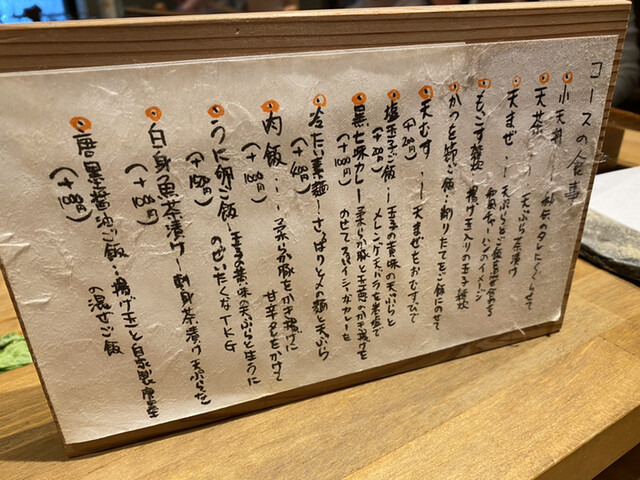 コースの食事
小天丼… 秘伝のタレにくぐらせて
天茶… 天ぷら茶漬け
天まぜ… 天ぷらとご飯を混ぜ合わせる
和風チャーハンのイメージ
もこす雑炊 揚げ玉入りの玉子雑炊
かつを節ご飯…削りたてをご飯にのせて
天むす… 天まぜをおむすびで
(+200円)
塩玉子ご飯…玉子の黄味の天ぷらと
(+200円) メレンゲ天バラを岩塩で
黒七味カレー 柔らか豚と玉葱のかき揚げを
(+1000円) のせてスパイシーなカレーを
冷たい素麺…さっぱりと〆の麺と天ぷら
(+400円)
肉飯…柔らか豚をかき揚げに
(+1000円) 甘辛タレをかけて
うに卵ご飯…玉子の黄味の天ぷらと生うに
のぜいたくなTKG
白身魚茶漬け…刺身茶漬け天ぷらだし
(+1000円)
唐墨醤油ご飯…揚げ玉と自家製唐墨
(+1000円) の混ぜご飯